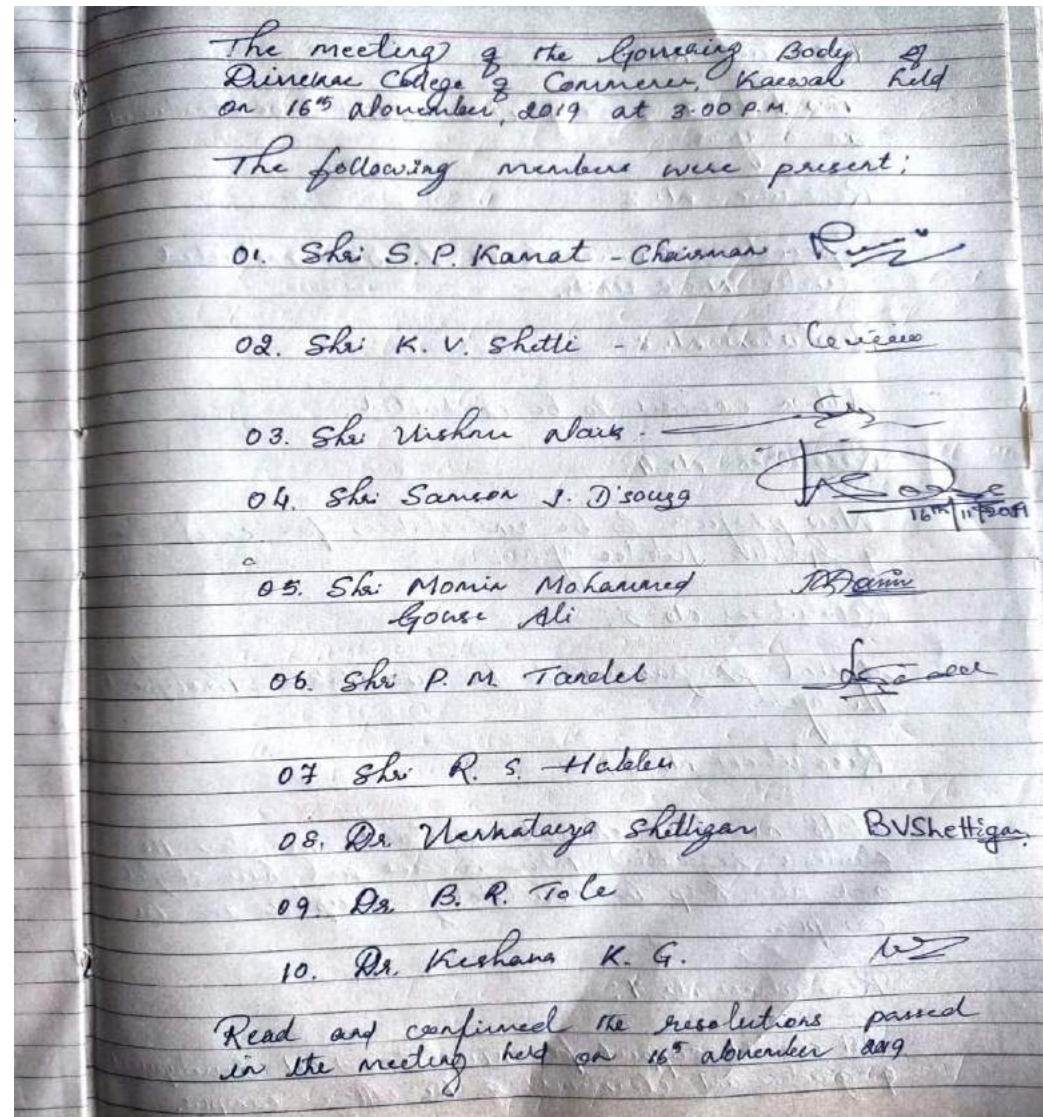 The meeting of the Governing Body of
Divekar College of Commerce, Karwar held
on 16th November, 2019 at 3.00 P.M.
The following members were present;
01. Shri S. P. Kamat - Chairman
02. Shri K. V. Shetti -
03. Shri Vishnu Naik -
04. Shri Samson J. D'souza
16th/11/2019
05. Shri Momin Mohammed
Gouse Ali
06. Shri P. M. Tandel
07 Shri R. S.
08. Dr Shettigar BVShettigar
09. Dr B. R. Tole
10. Dr. Keshava K. G.
Read and confirmed the resolutions passed
in the meeting held on 16th November 2019